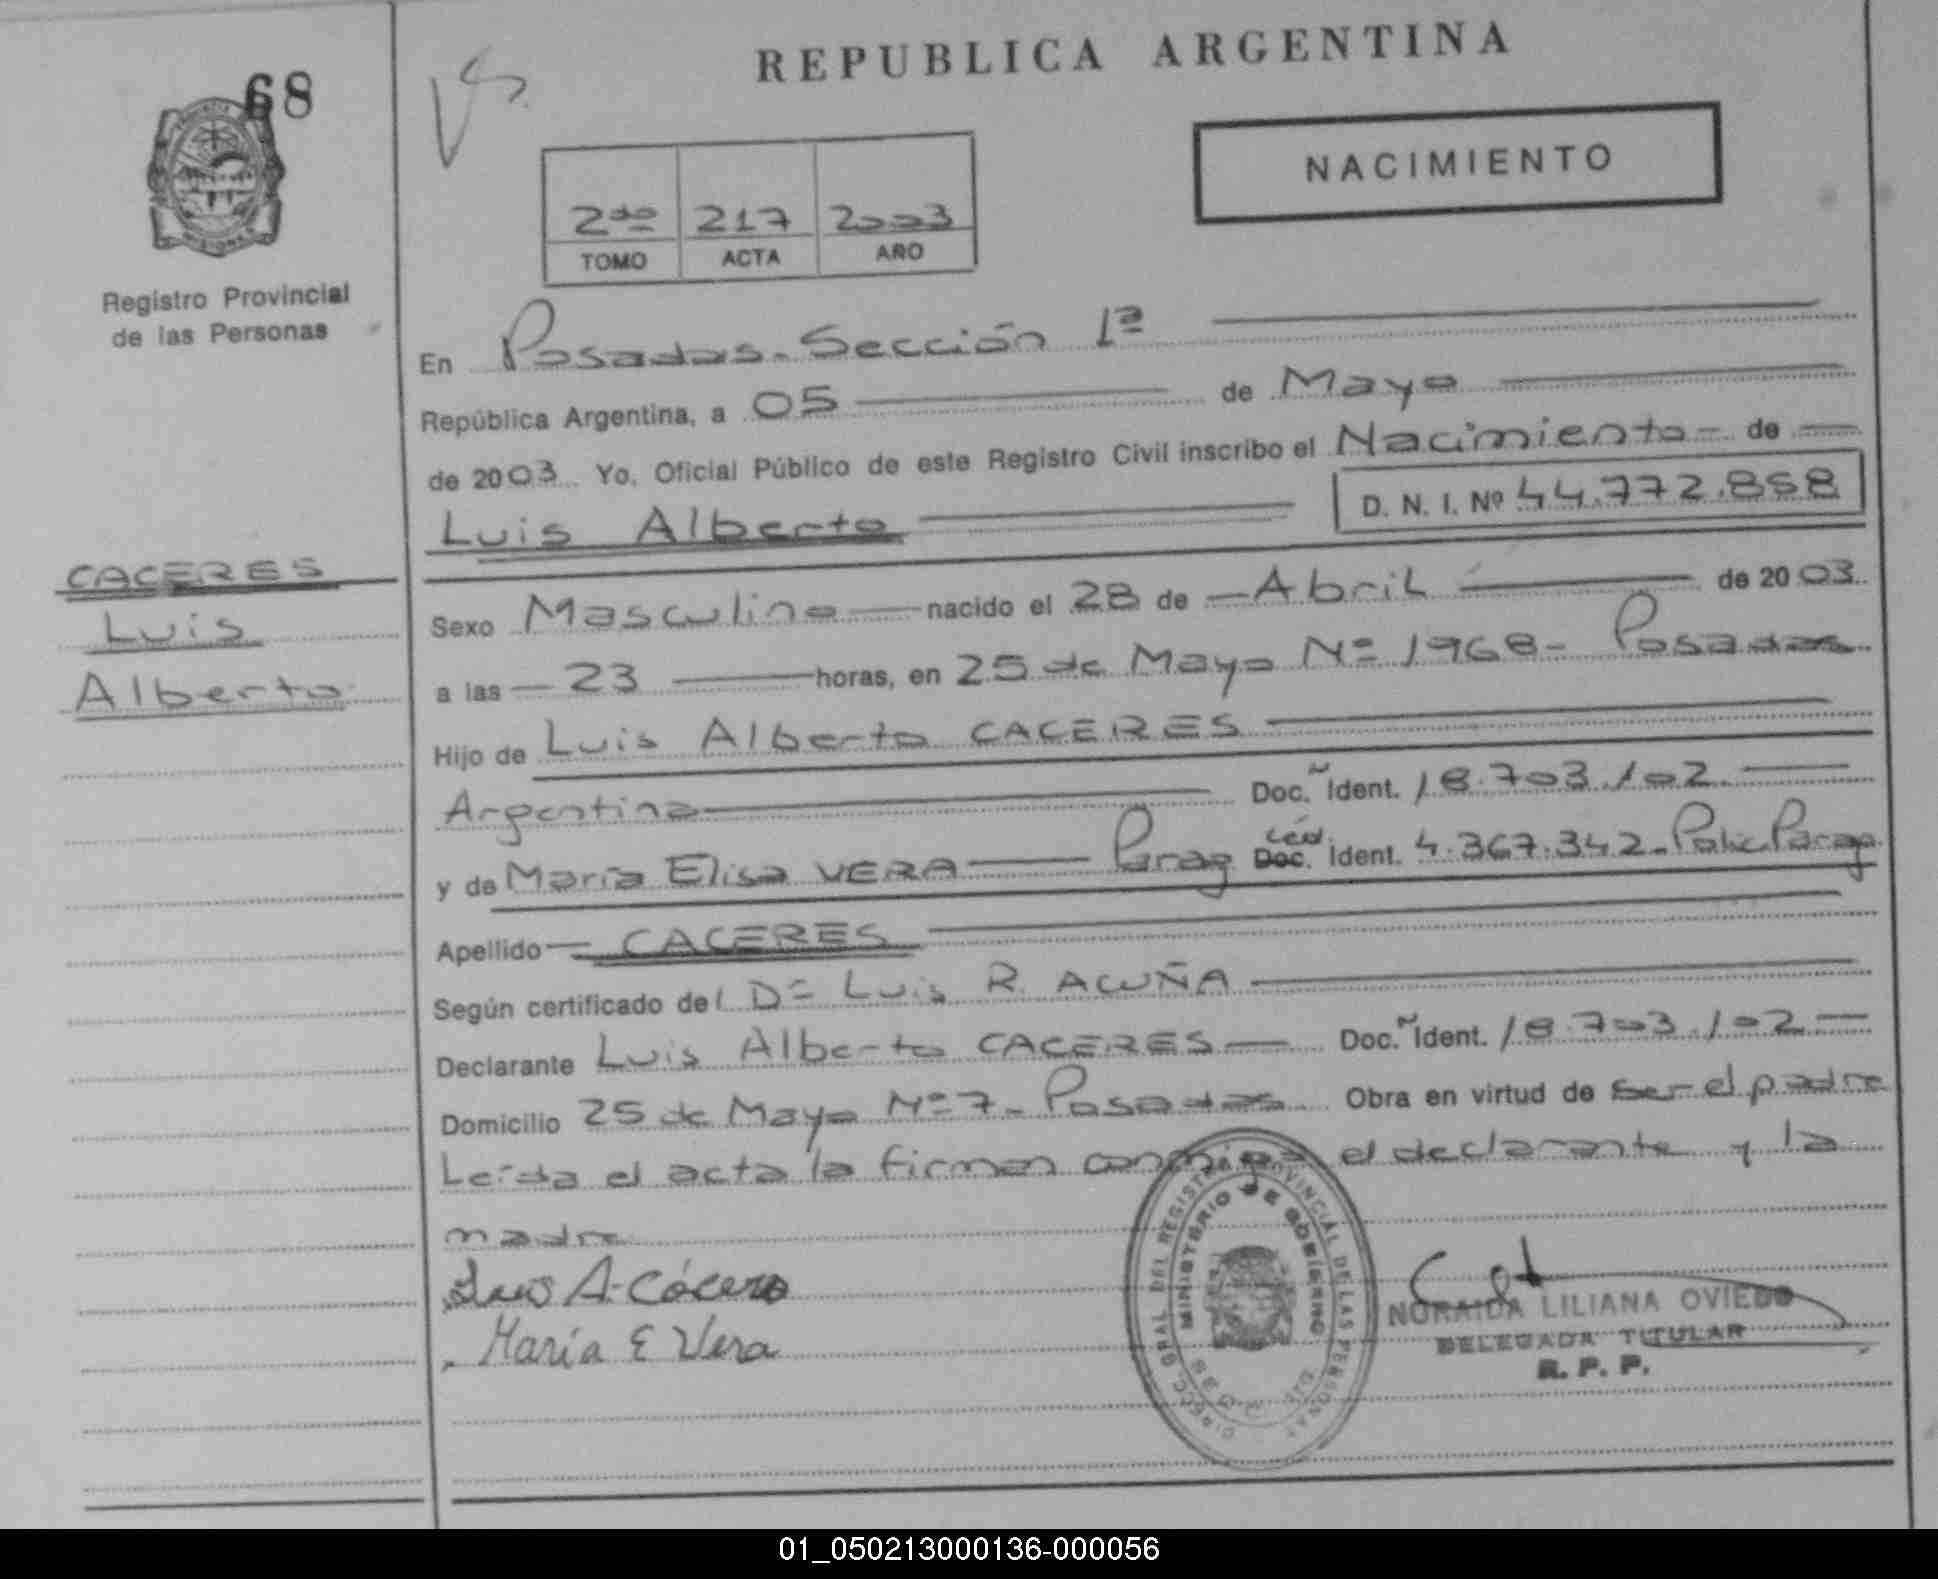 REPUBLICA ARGENTINA
68
NACIMIENTO
2do 217 2003
TOMO ACTA AÑO
MISIONES
Registro Provincial
de las Personas
En Posadas - Sección 1ª
República Argentina, a 05 de Mayo
de 2003 Yo, Oficial Público de este Registro Civil inscribo el Nacimiento - de
Luis Alberto D. N. I. Nº 44.772.858
CACERES
Luis
Alberto
Sexo Masculino nacido el 28 de Abril de 2003
a las 23 horas, en 25 de Mayo Nº 1968 - Posadas
Hijo de Luis Alberto CACERES
Argentina Doc. Ident. 18.703.102
y de María Elisa VERA Parag Céd. Doc. Ident. 4.367.342 - Polic. Parag.
Apellido CACERES
Según certificado del Dr Luis R. ACUÑA
Declarante Luis Alberto CACERES Doc. Ident. 18.703.102
Domicilio 25 de Mayo Nº 7 - Posadas Obra en virtud de ser el padre
Leída el acta la firman conmigo el declarante y la
madre
Luis A. Cáceres
María E Vera
DIRECC. GRAL DEL REGISTRO PROVINCIAL DE LAS PERSONAS
MINISTERIO DE GOBIERNO
NORAIDA LILIANA OVIEDO
DELEGADA TITULAR
R. P. P.
01_050213000136-000056